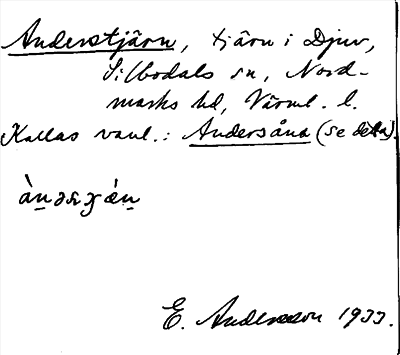 Anderstjärn, tjärn i Djuv,
Silbodals sn, Nord-
marks hd, Värml. l.
Kallas vanl.: Andersåna (se detta).
E. Andersson 1933.